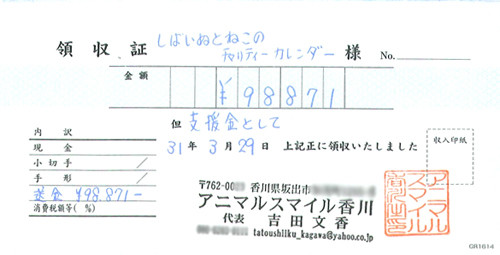 領収証 しばいぬとねこの
チャリティーカレンダー 様 No.
金額 ¥98871
但 支援金として
内訳
現金
小切手 /
手形 /
送金 ¥98.871-
消費税額等( %)
31年 3月 29日 上記正に領収いたしました
収入印紙
〒762-00 香川県坂出市
アニマルスマイル香川
代表 吉田文香
tatoushiiku_kagawa@yahoo.co.jp
アニマル
スマイル
香川之印
GR1614